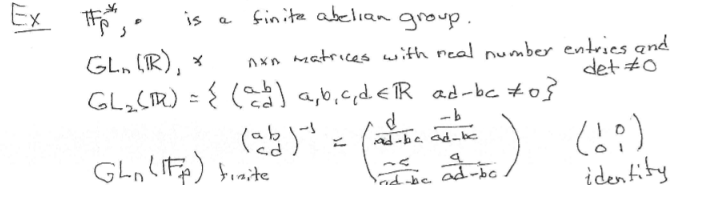 Ex 𝔽ₚ*, • is a finite abelian group.
GLₙ(ℝ), × n×n matrices with real number entries and det ≠ 0
GL₂(ℝ) = { (a b / c d) a,b,c,d ∈ ℝ ad-bc ≠ 0 }
(a b / c d)⁻¹ = ( d/(ad-bc) -b/(ad-bc) / -c/(ad-bc) a/(ad-bc) ) (1 0 / 0 1)
GLₙ(𝔽ₚ) finite identity